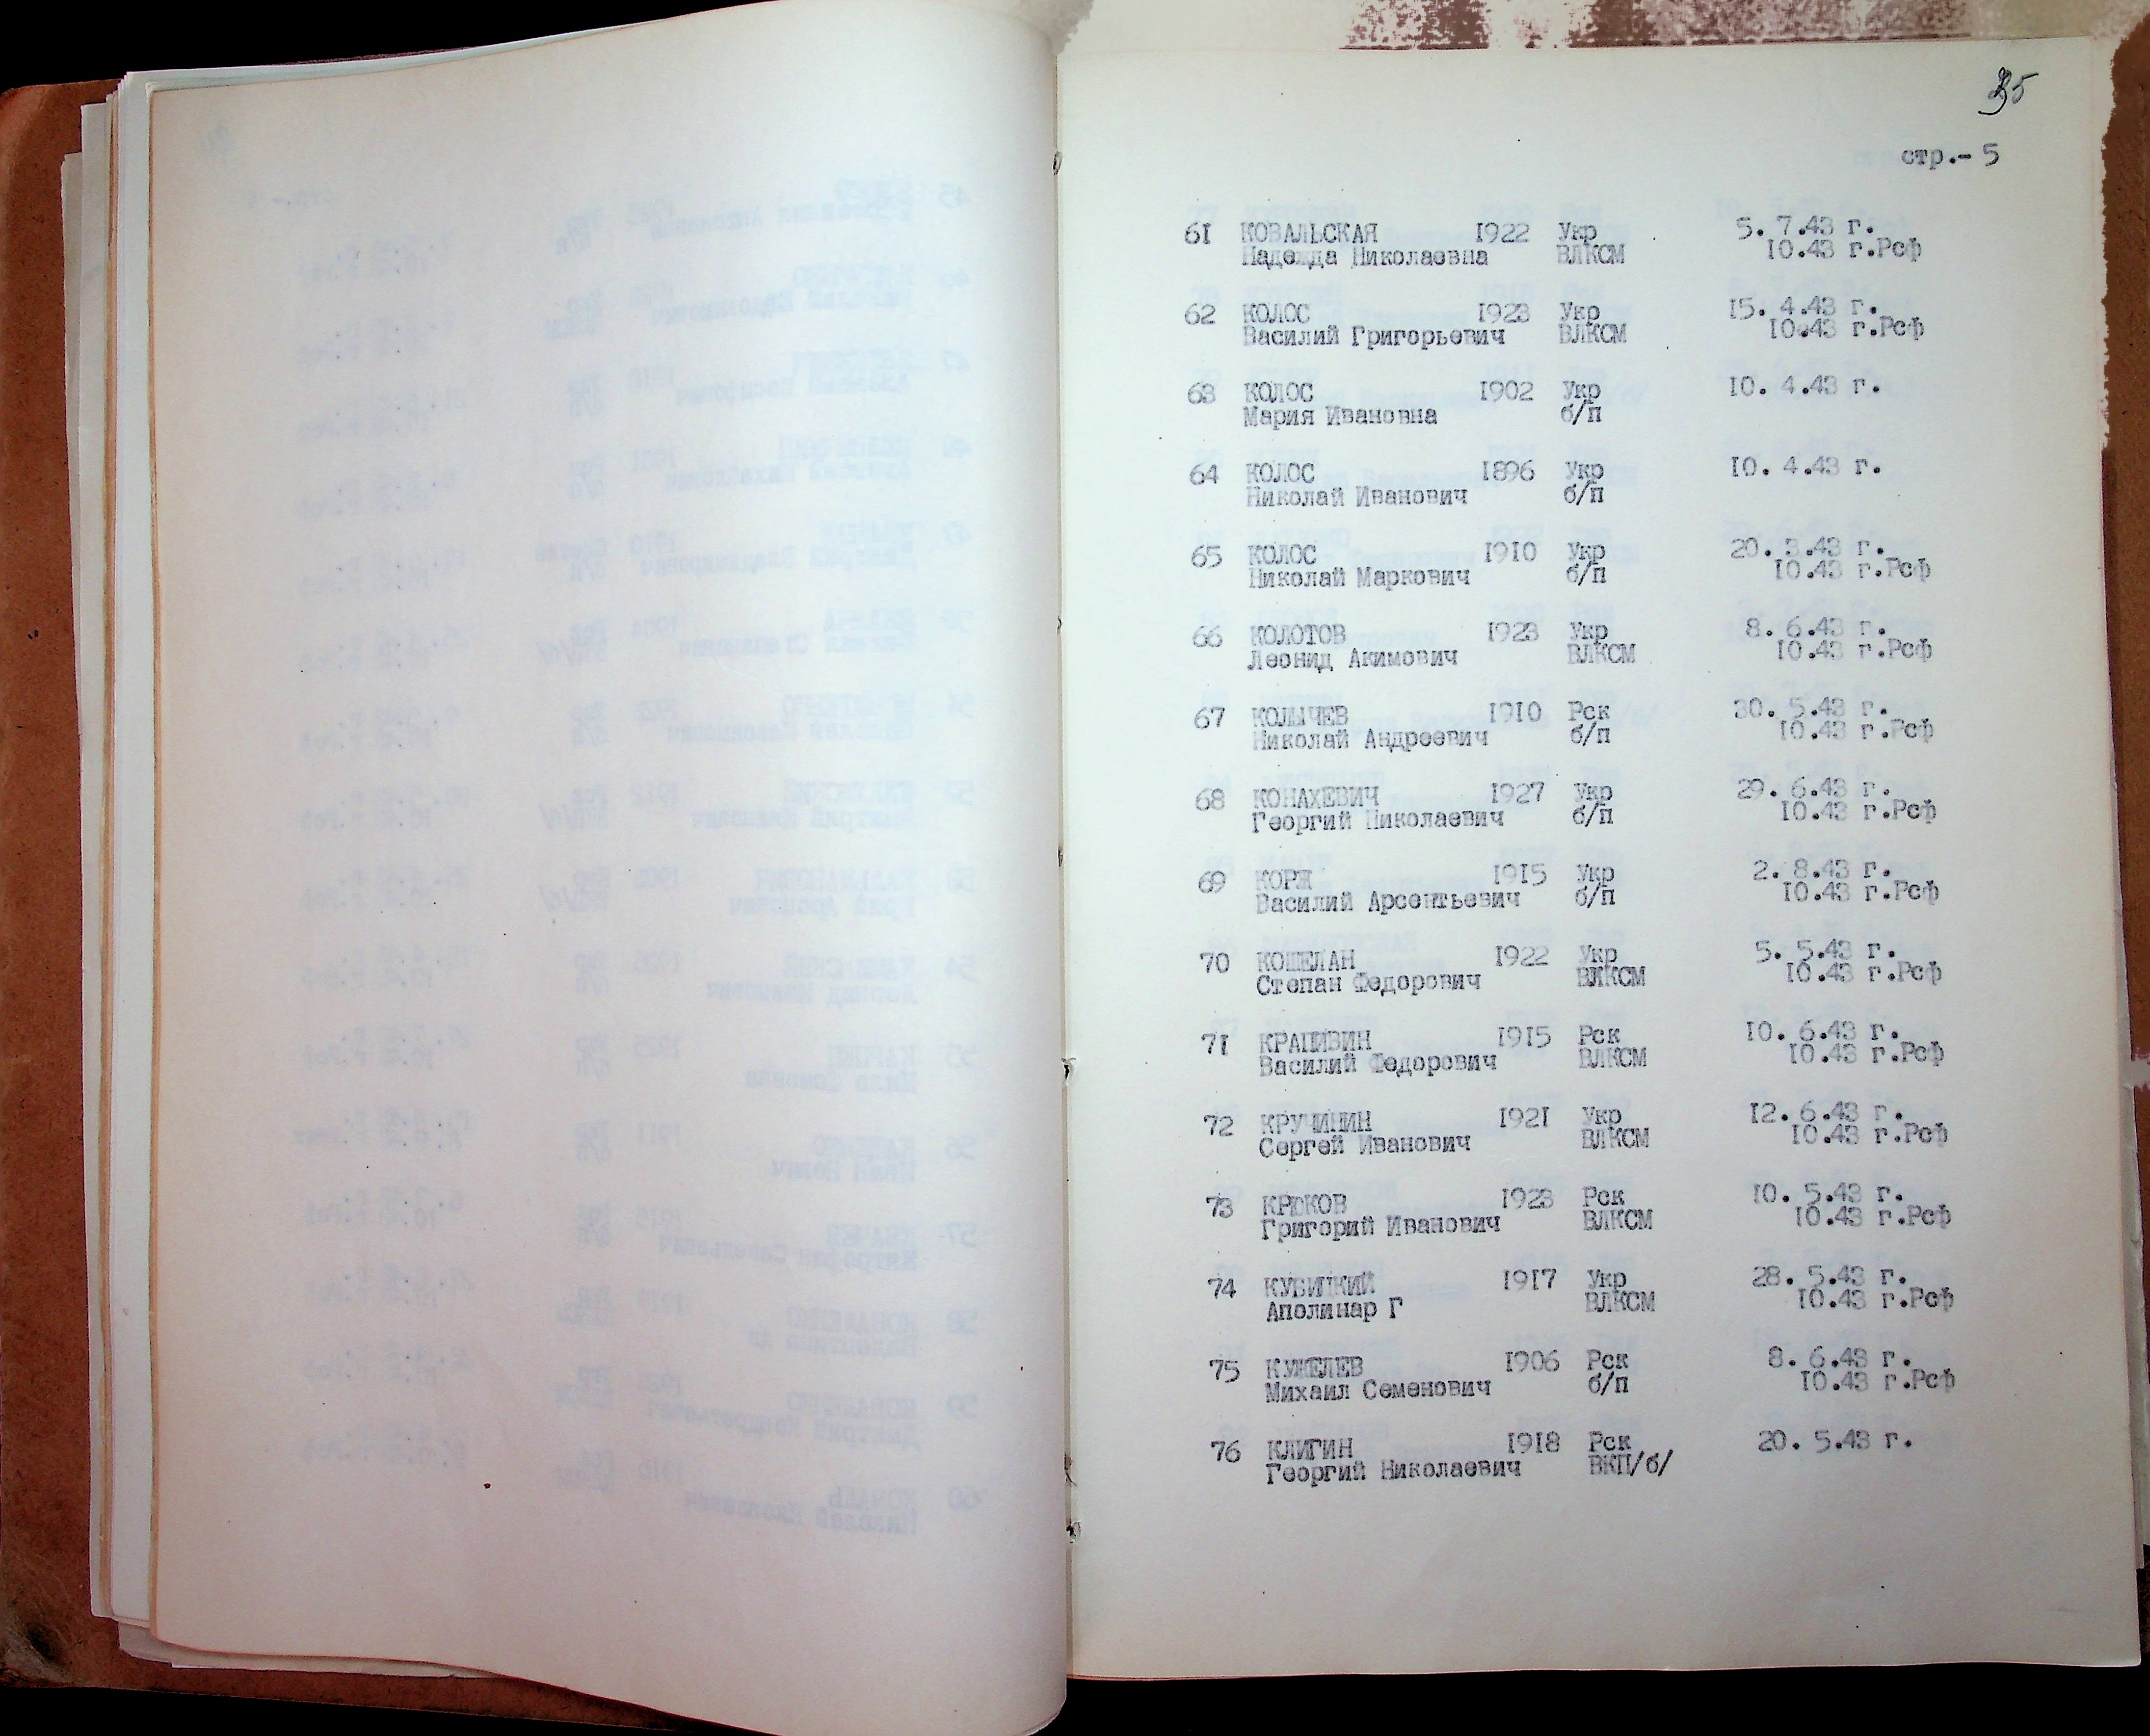 35
стр.- 5
61 КОВАЛЬСКАЯ 1922 Укр 5. 7.43 г.
Надежда Николаевна ВЛКСМ 10.43 г.Рсф
62 КОЛОС 1923 Укр 15. 4.43 г.
Василий Григорьевич ВЛКСМ 10.43 г.Рсф
63 КОЛОС 1902 Укр 10. 4.43 г.
Мария Ивановна б/п
64 КОЛОС 1896 Укр 10. 4.43 г.
Николай Иванович б/п
65 КОЛОС 1910 Укр 20. 3.43 г.
Николай Маркович б/п 10.43 г.Рсф
66 КОЛОТОВ 1923 Укр 8. 6.43 г.
Леонид Акимович ВЛКСМ 10.43 г.Рсф
67 КОЛЫЧЕВ 1910 Рск 30. 5.43 г.
Николай Андреевич б/п 10.43 г.Рсф
68 КОНАХЕВИЧ 1927 Укр 29. 6.43 г.
Георгий Николаевич б/п 10.43 г.Рсф
69 КОРЖ 1915 Укр 2. 8.43 г.
Василий Арсентьевич б/п 10.43 г.Рсф
70 КОШЕЛАН 1922 Укр 5. 5.43 г.
Степан Федорович ВЛКСМ 10.43 г.Рсф
71 КРАПИВИН 1915 Рск 10. 6.43 г.
Василий Федорович ВЛКСМ 10.43 г.Рсф
72 КРУЧИНИН 1921 Укр 12. 6.43 г.
Сергей Иванович ВЛКСМ 10.43 г.Рсф
73 КРЮКОВ 1923 Рск 10. 5.43 г.
Григорий Иванович ВЛКСМ 10.43 г.Рсф
74 КУБИЦКИЙ 1917 Укр 28. 5.43 г.
Аполинар Г ВЛКСМ 10.43 г.Рсф
75 КУЖЕЛЕВ 1906 Рск 8. 6.43 г.
Михаил Семенович б/п 10.43 г.Рсф
76 КЛИГИН 1918 Рск 20. 5.43 г.
Георгий Николаевич ВКП/б/